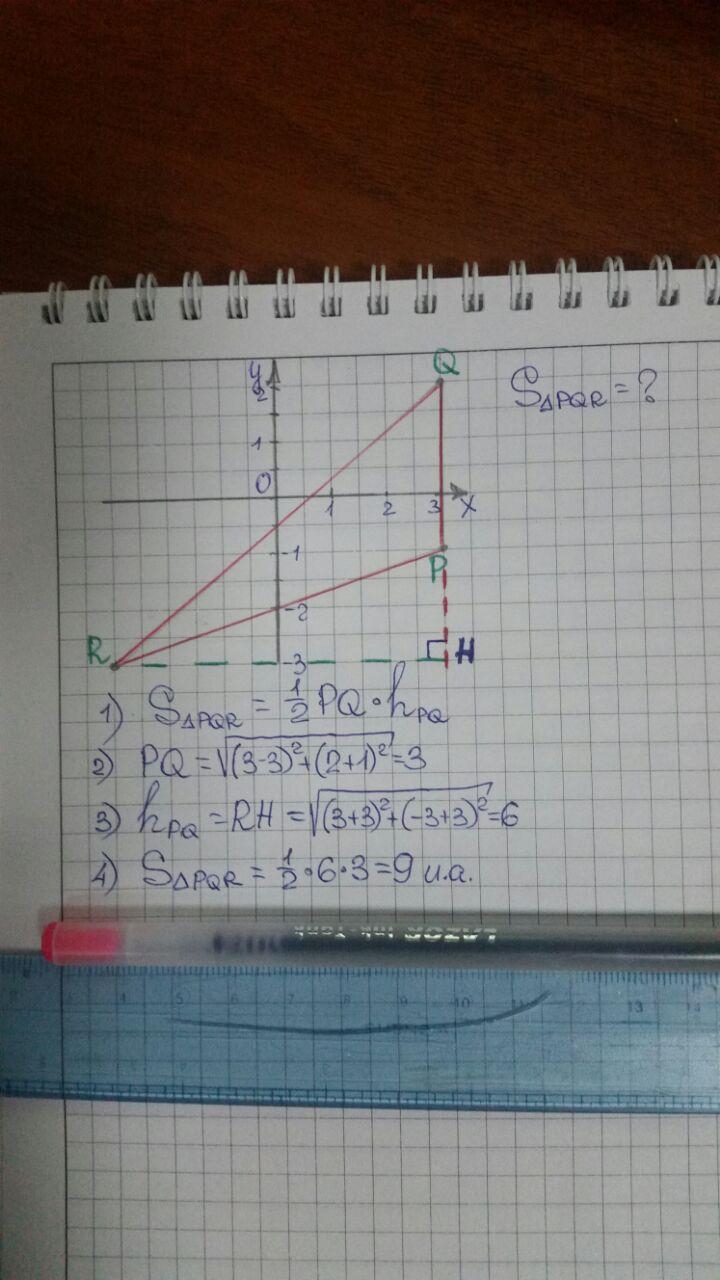 y Q
2
S△PQR = ?
1
O
1 2 3 X
-1
P
-2
R H
-3
1) S△PQR = 1/2 PQ · hPQ
2) PQ = √(3-3)²+(2+1)² = 3
3) hPQ = RH = √(3+3)²+(-3+3)² = 6
4) S△PQR = 1/2 · 6 · 3 = 9 u.a.
5 6 7 8 9 10 11 13 14